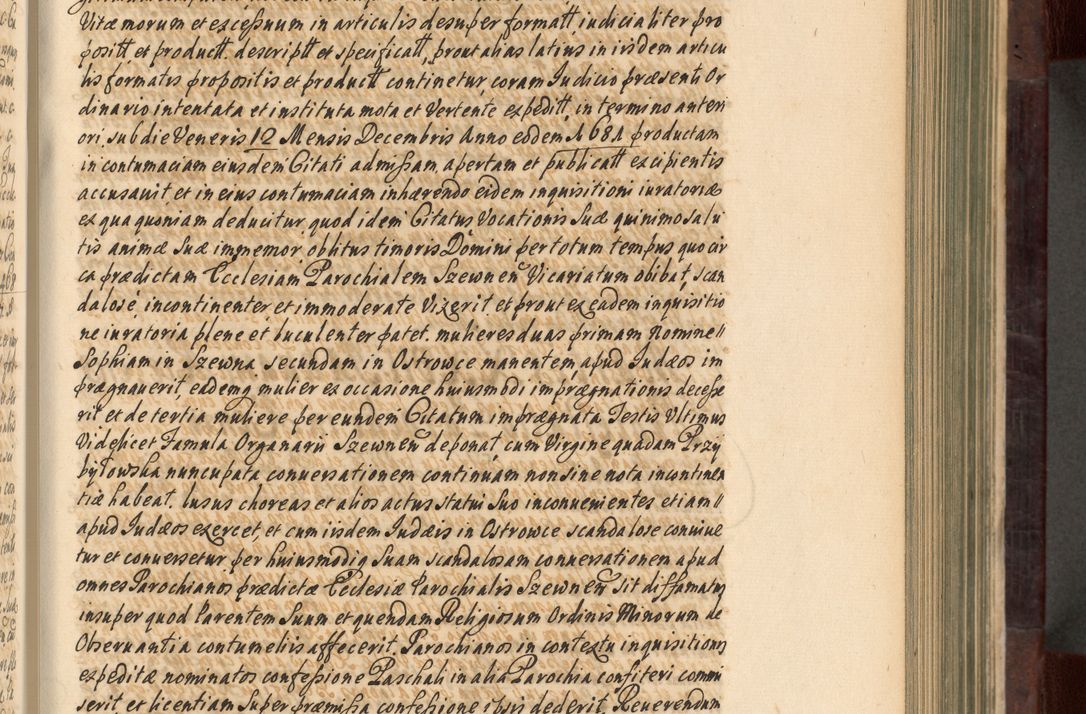 Vitæ morum et excessuum in articulis desuper formatt, iudicialiter pro
positt et productt. descriptt et specificatt, prout alias latius in iisdem articu
lis formatis propositis et productt continetur, coram Iudicio præsenti Or
dinario intentata et instituta mota et Vertente expeditt, in termino anteri
ori, sub die Veneris 12 Mensis Decembris Anno eodem 1681 productam
in contumaciam eiusdem Citati admissam, apertam et publicatt excipientis
accusauit et in eius contumaciam inhærendo eidem inquisitioni iuratoriæ
ex qua quoniam deducitur, quod idem Citatus Vocationis Suæ quinimo salu
tis animæ Suæ immemor, oblitus timoris Domini per totum tempus quo cir
ca prædictam Ecclesiam Parochialem Szewnen Vicariatum obibat, scan
dalose, incontinenter et immoderate Vixerit et prout ex eadem inquisitio
ne iuratoria plene et luculenter patet. mulieres duas primam nomine
Sophiam in Szewna secundam in Ostrowce manentem apud Iudæos im
prægnauerit, eademq mulier ex occasione huiusmodi imprægnationis decesse
rit et de tertia muliere per eundem Citatum imprægnata Testis Vltimus
Videlicet Famula Organarii Szewnen deponat, cum Virgine quadam Przy
byłowska nuncupata conuersationem continuam non sine nota incontinen
tiæ habeat. lusus choreas et alios actus statui Suo inconuenientes etiam
apud Iudæos exercet, et cum iisdem Iudæis in Ostrowce scandalose conviue
tur et conuersetur, per huiusmodiq Suam scandalosam conuersationem apud
omnes Parochianos prædictæ Ecclesiæ Parochialis Szewnen Sit diffamatus
insuper quod Parentem Suum et quendam Religiosum Ordinis Minorum de
Obseruantia contumeliis affecerit. Parochianos in contextu inquisitionis
expeditæ nominatos confessione Paschali in alia Parochia confiteri commi
serit, et licentiam Super præmissa confessione ipsis dederit. Reuerendum